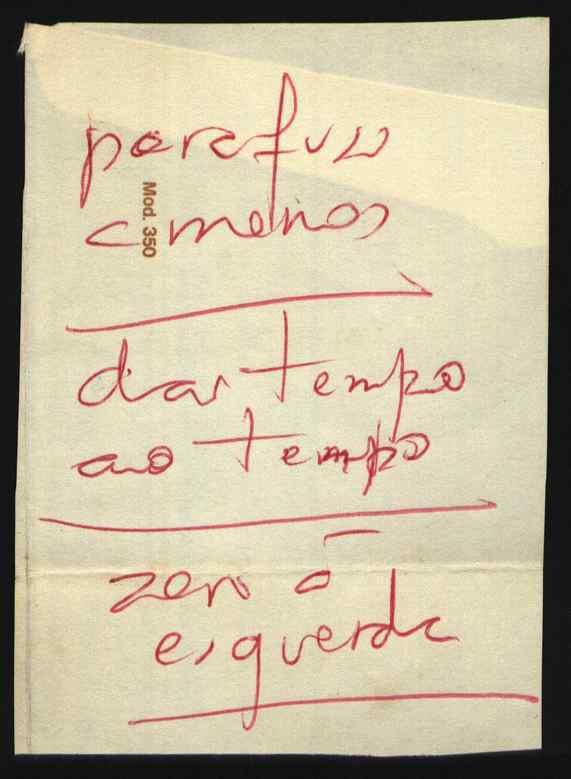 parafuso
a menos
dar tempo
ao tempo
zero à
esquerda
Mod. 350